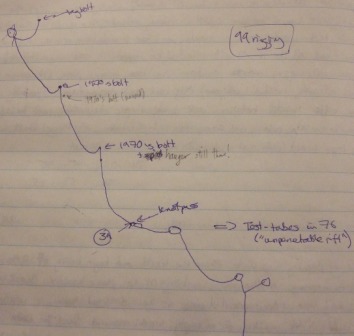 99 rigging
← 1970's bolt
1970's bolt
← 1970's bolt
hanger still there!
knot pass
⇒ Test-tubes in 78
("unpenetrable rift")